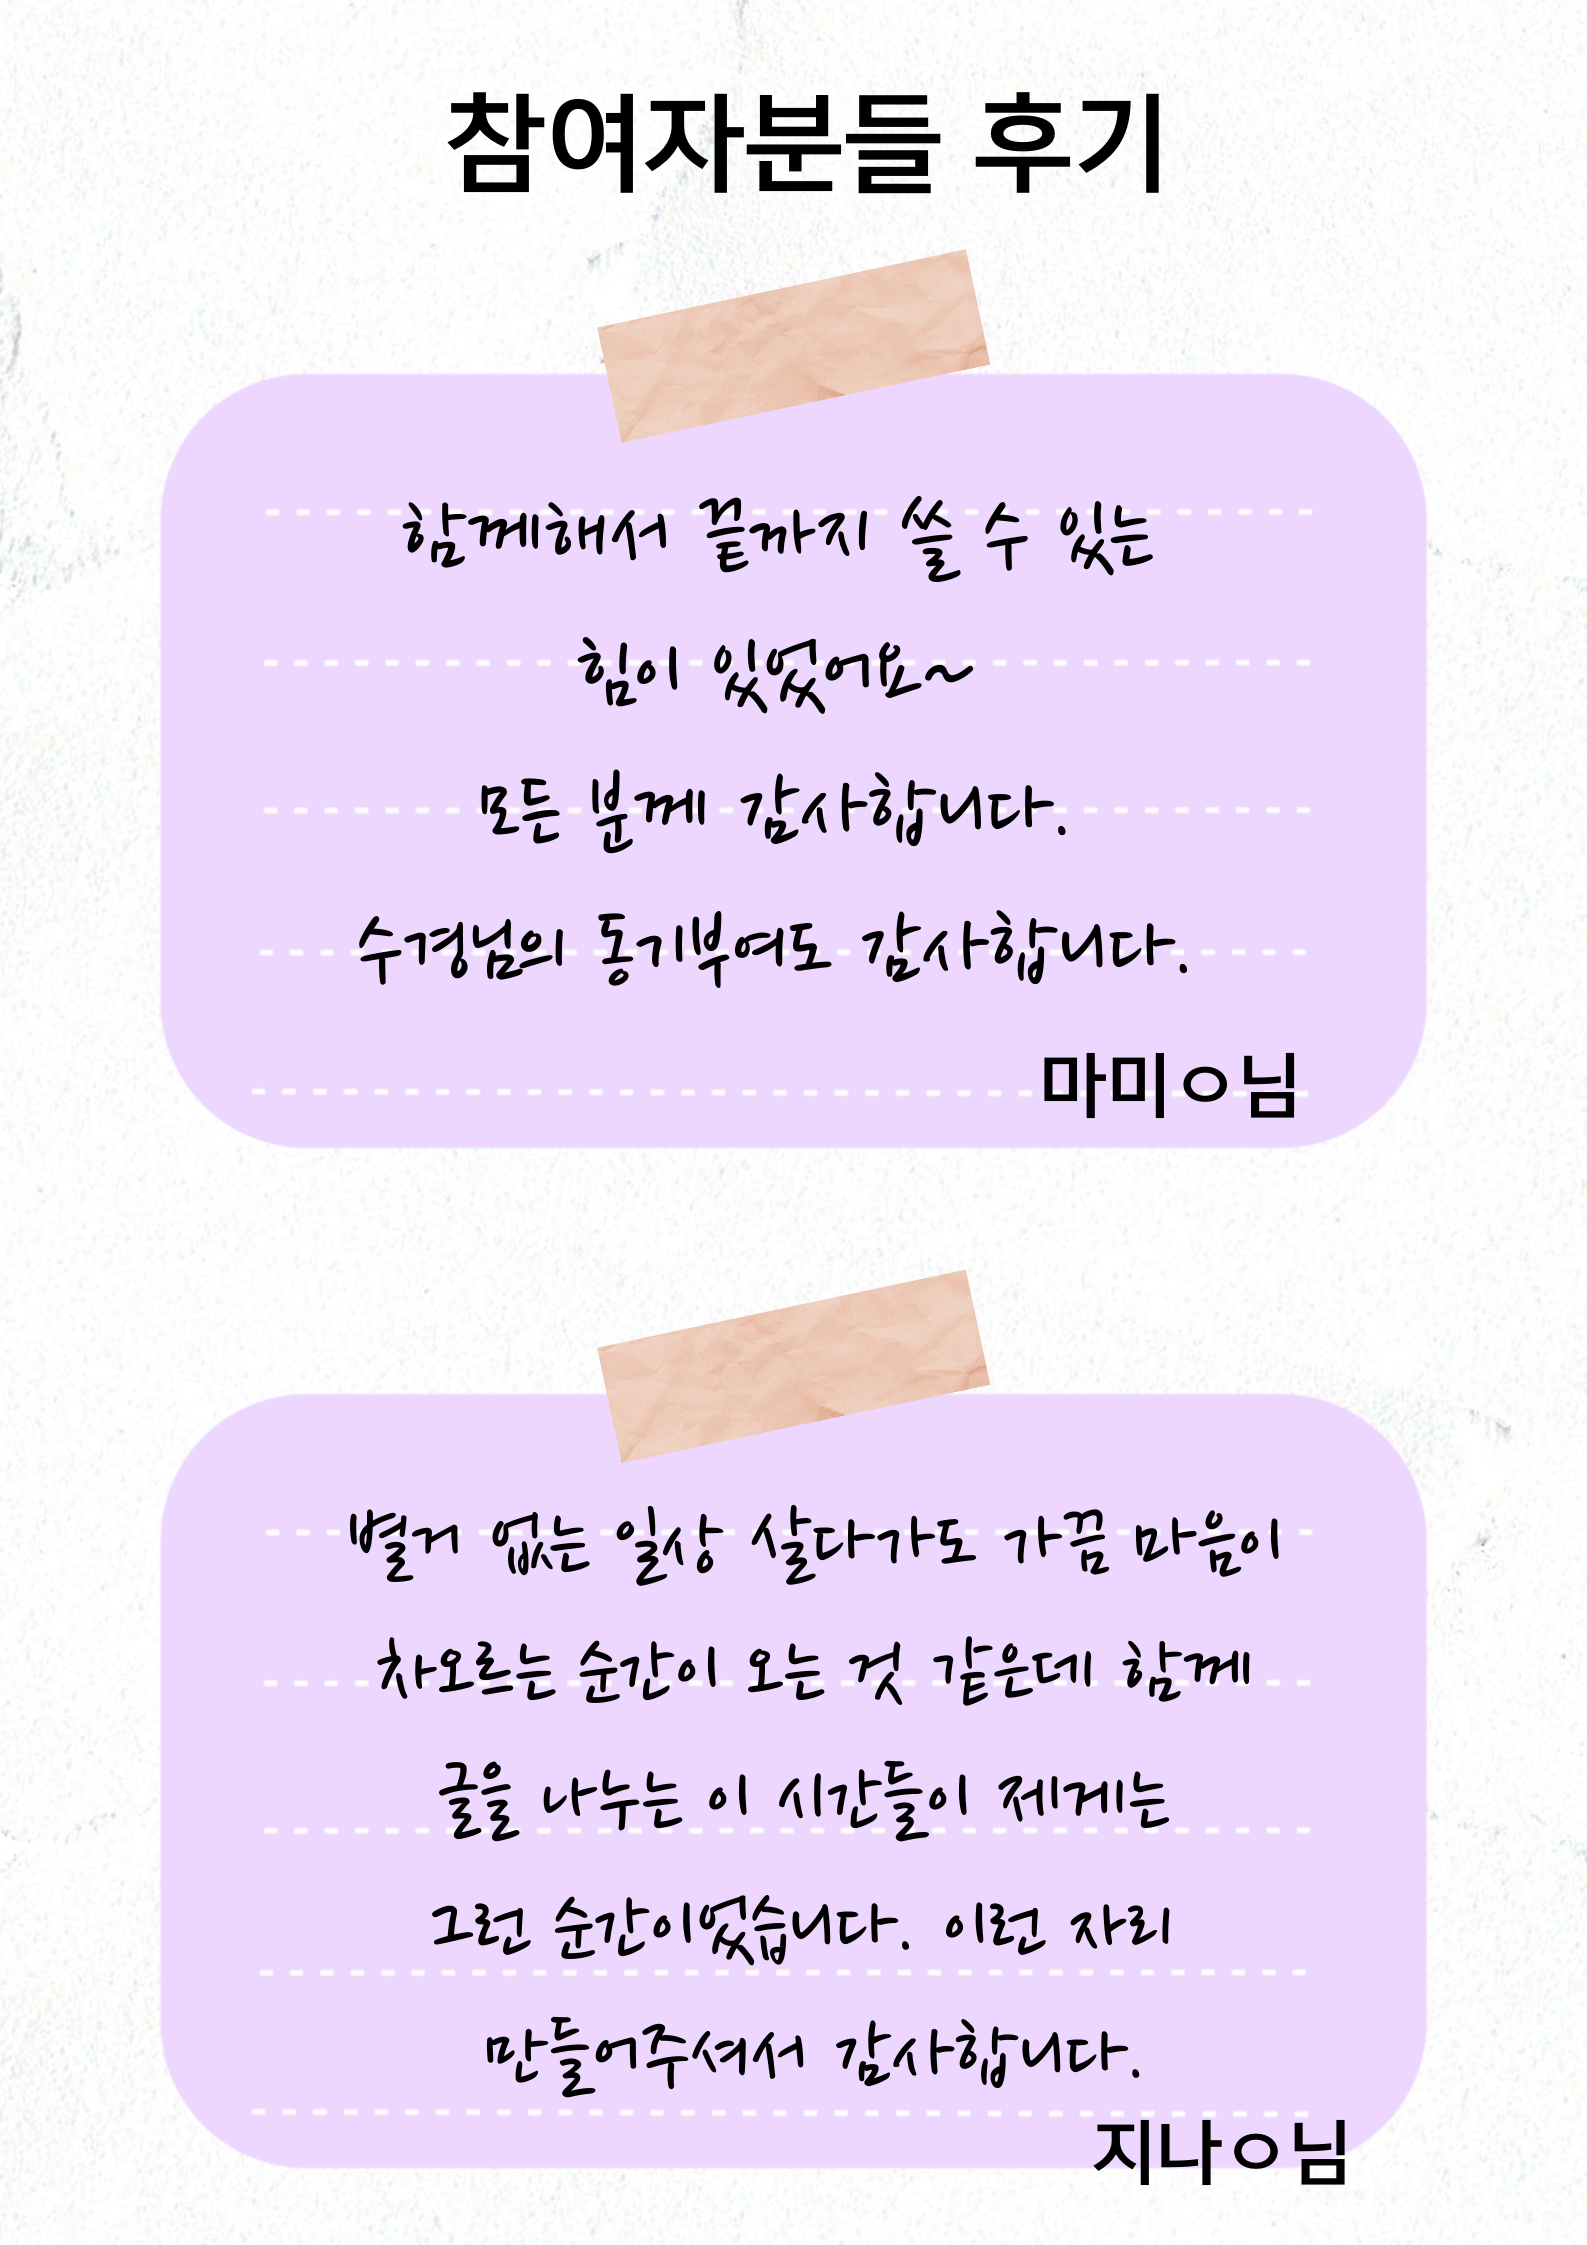 참여자분들 후기
함께해서 끝까지 쓸 수 있는
힘이 있었어요~
모든 분께 감사합니다.
수경님의 동기부여도 감사합니다.
마미ㅇ님
별거 없는 일상 살다가도 가끔 마음이
차오르는 순간이 오는 것 같은데 함께
글을 나누는 이 시간들이 제게는
그런 순간이었습니다. 이런 자리
만들어주셔서 감사합니다.
지나ㅇ님